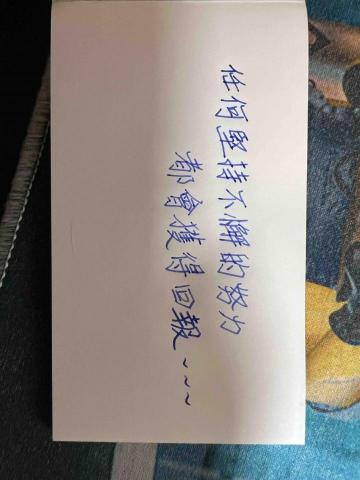 任何堅持不懈的努力
都會獲得回報~~~